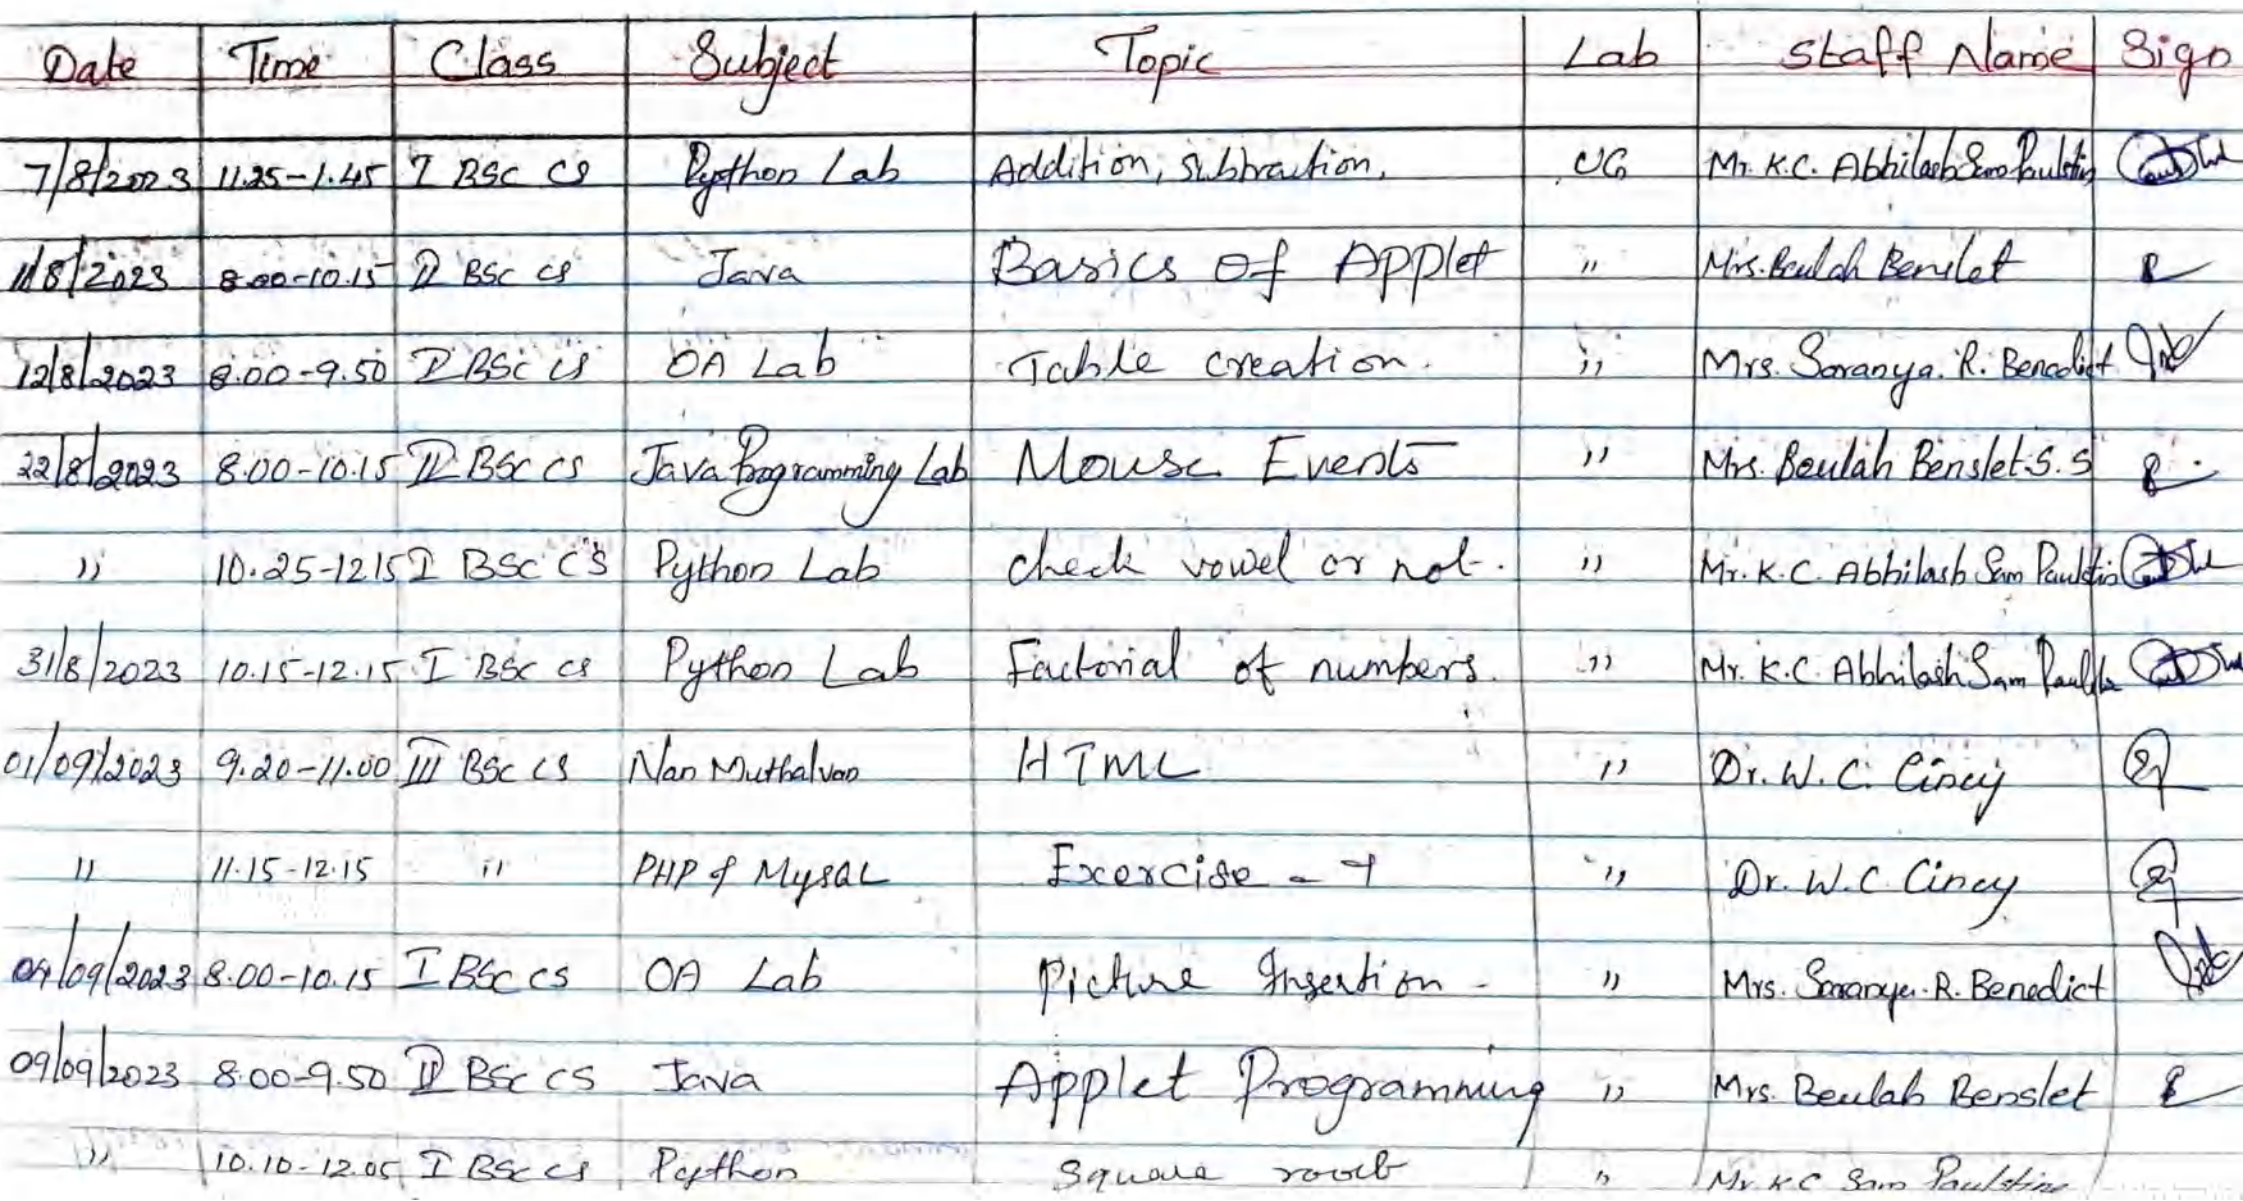 Date Time Class Subject Topic Lab Staff Name Sign
7/8/2023 11.25-1.45 I BSc CS Python Lab Addition, Subtraction, UG Mr. K.C. Abhilash Sam Paulstin
11/8/2023 8.00-10.15 II BSc CS Java Basics of Applet " Mrs. Beulah Benslet
12/8/2023 8.00-9.50 I BSc CS OA Lab Table creation. " Mrs. Saranya. R. Benedict
22/8/2023 8.00-10.15 II BSc CS Java Programming Lab Mouse Events " Mrs. Beulah Benslet S. S
" 10.25-12.15 I BSc CS Python Lab check vowel or not. " Mr. K.C. Abhilash Sam Paulstin
31/8/2023 10.15-12.15 I BSc CS Python Lab Factorial of numbers. " Mr. K.C. Abhilash Sam
01/09/2023 9.20-11.00 III BSc CS Nan Muthalvan HTML " Dr. W. C. Cincy
" 11.15-12.15 " PHP & MySQL Exercise - " Dr. W. C. Cincy
04/09/2023 8.00-10.15 I BSc CS OA Lab Picture Insertion - " Mrs. Saranya. R. Benedict
09/09/2023 8.00-9.50 II BSc CS Java Applet Programming " Mrs. Beulah Benslet
" 10.10-12.05 I BSc CS Python Square root " Mr. K.C Sam Paulstin